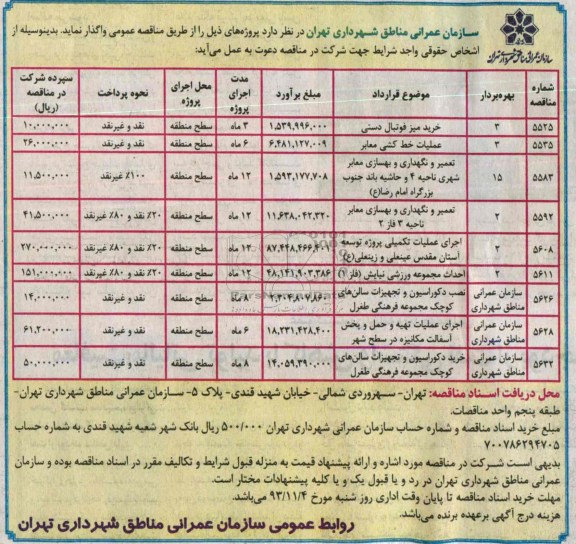 سازمان عمرانی مناطق شهرداری تهران در نظر دارد پروژه‌های ذیل را از طریق مناقصه عمومی واگذار نماید. بدینوسیله از
اشخاص حقوقی واجد شرایط جهت شرکت در مناقصه دعوت به عمل می‌آید:
سازمان عمرانی مناطق شهرداری تهران
شماره مناقصه | بهره‌بردار | موضوع قرارداد | مبلغ برآورد | مدت اجرای پروژه | محل اجرای پروژه | نحوه پرداخت | سپرده شرکت در مناقصه (ریال)
۵۵۲۵ | ۳ | خرید میز فوتبال دستی | ۱,۵۳۹,۹۹۶,۰۰۰ | ۳ ماه | سطح منطقه | نقد و غیرنقد | ۱۰,۰۰۰,۰۰۰
۵۵۳۵ | ۳ | عملیات خط کشی معابر | ۶,۴۸۱,۱۲۷,۰۰۹ | ۶ ماه | سطح منطقه | نقد و غیرنقد | ۲۶,۰۰۰,۰۰۰
۵۵۸۳ | ۱۵ | تعمیر و نگهداری و بهسازی معابر شهری ناحیه ۴ و حاشیه باند جنوب بزرگراه امام رضا(ع) | ۱,۵۹۳,۱۷۷,۷۰۸ | ۱۲ ماه | سطح منطقه | ۱۰۰٪ غیرنقد | ۱۱,۵۰۰,۰۰۰
۵۵۹۲ | ۲ | تعمیر و نگهداری و بهسازی معابر ناحیه ۳ فاز ۲ | ۱۱,۶۳۸,۰۴۲,۳۲۰ | ۱۲ ماه | سطح منطقه | ۲۰٪ نقد و ۸۰٪ غیرنقد | ۴۱,۵۰۰,۰۰۰
۵۶۰۸ | ۲ | اجرای عملیات تکمیلی پروژه توسعه آستان مقدس عینعلی و زینعلی(ع) | ۸۷,۴۴۸,۴۶۶,۴۰۷ | ۱۲ ماه | سطح منطقه | ۲۰٪ نقد و ۸۰٪ غیرنقد | ۲۷۰,۰۰۰,۰۰۰
۵۶۱۱ | ۲ | احداث مجموعه ورزشی نیایش (فاز ۱) | ۴۸,۱۴۱,۹۰۳,۳۸۶ | ۱۲ ماه | سطح منطقه | ۲۰٪ نقد و ۸۰٪ غیرنقد | ۱۵۱,۰۰۰,۰۰۰
۵۶۲۶ | سازمان عمرانی مناطق شهرداری | نصب دکوراسیون و تجهیزات سالن‌های کوچک مجموعه فرهنگی طغرل | ۲,۳۰۴,۸۰۷,۸۶۰ | ۸ ماه | سطح منطقه | نقد و غیرنقد | ۱۴,۰۰۰,۰۰۰
۵۶۲۸ | سازمان عمرانی مناطق شهرداری | اجرای عملیات تهیه و حمل و پخش آسفالت مکانیزه در سطح شهر | ۱۸,۲۳۱,۴۲۸,۴۰۰ | ۶ ماه | سطح منطقه | نقد و غیرنقد | ۶۱,۲۰۰,۰۰۰
۵۶۳۲ | سازمان عمرانی مناطق شهرداری | خرید دکوراسیون و تجهیزات سالن‌های کوچک مجموعه فرهنگی طغرل | ۱۴,۰۵۹,۳۹۰,۰۰۰ | ۸ ماه | سطح منطقه | نقد و غیرنقد | ۵۰,۰۰۰,۰۰۰
محل دریافت اسناد مناقصه: تهران- سهروردی شمالی- خیابان شهید قندی- پلاک ۵- سازمان عمرانی مناطق شهرداری تهران-
طبقه پنجم واحد مناقصات.
مبلغ خرید اسناد مناقصه و شماره حساب سازمان عمرانی شهرداری تهران ۵۰۰/۰۰۰ ریال بانک شهر شعبه شهید قندی به شماره حساب
۷۰۰۷۸۶۲۹۴۷۰۵
بدیهی است شرکت در مناقصه مورد اشاره و ارائه پیشنهاد قیمت به منزله قبول شرایط و تکالیف مقرر در اسناد مناقصه بوده و سازمان
عمرانی مناطق شهرداری تهران در رد و یا قبول یک و یا کلیه پیشنهادات مختار است.
مهلت خرید اسناد مناقصه تا پایان وقت اداری روز شنبه مورخ ۹۳/۱۱/۴ می‌باشد.
هزینه درج آگهی برعهده برنده می‌باشد.
روابط عمومی سازمان عمرانی مناطق شهرداری تهران